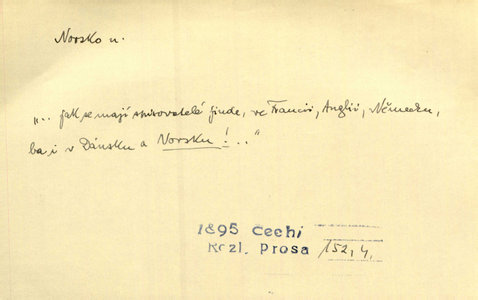 Norsko n.
„.. jak se mají spisovatelé jinde, ve Francii, Anglii, Německu,
ba i v Dánsku a Norsku! .."
1895 Čechi
Rozl. Prosa 152, 4.